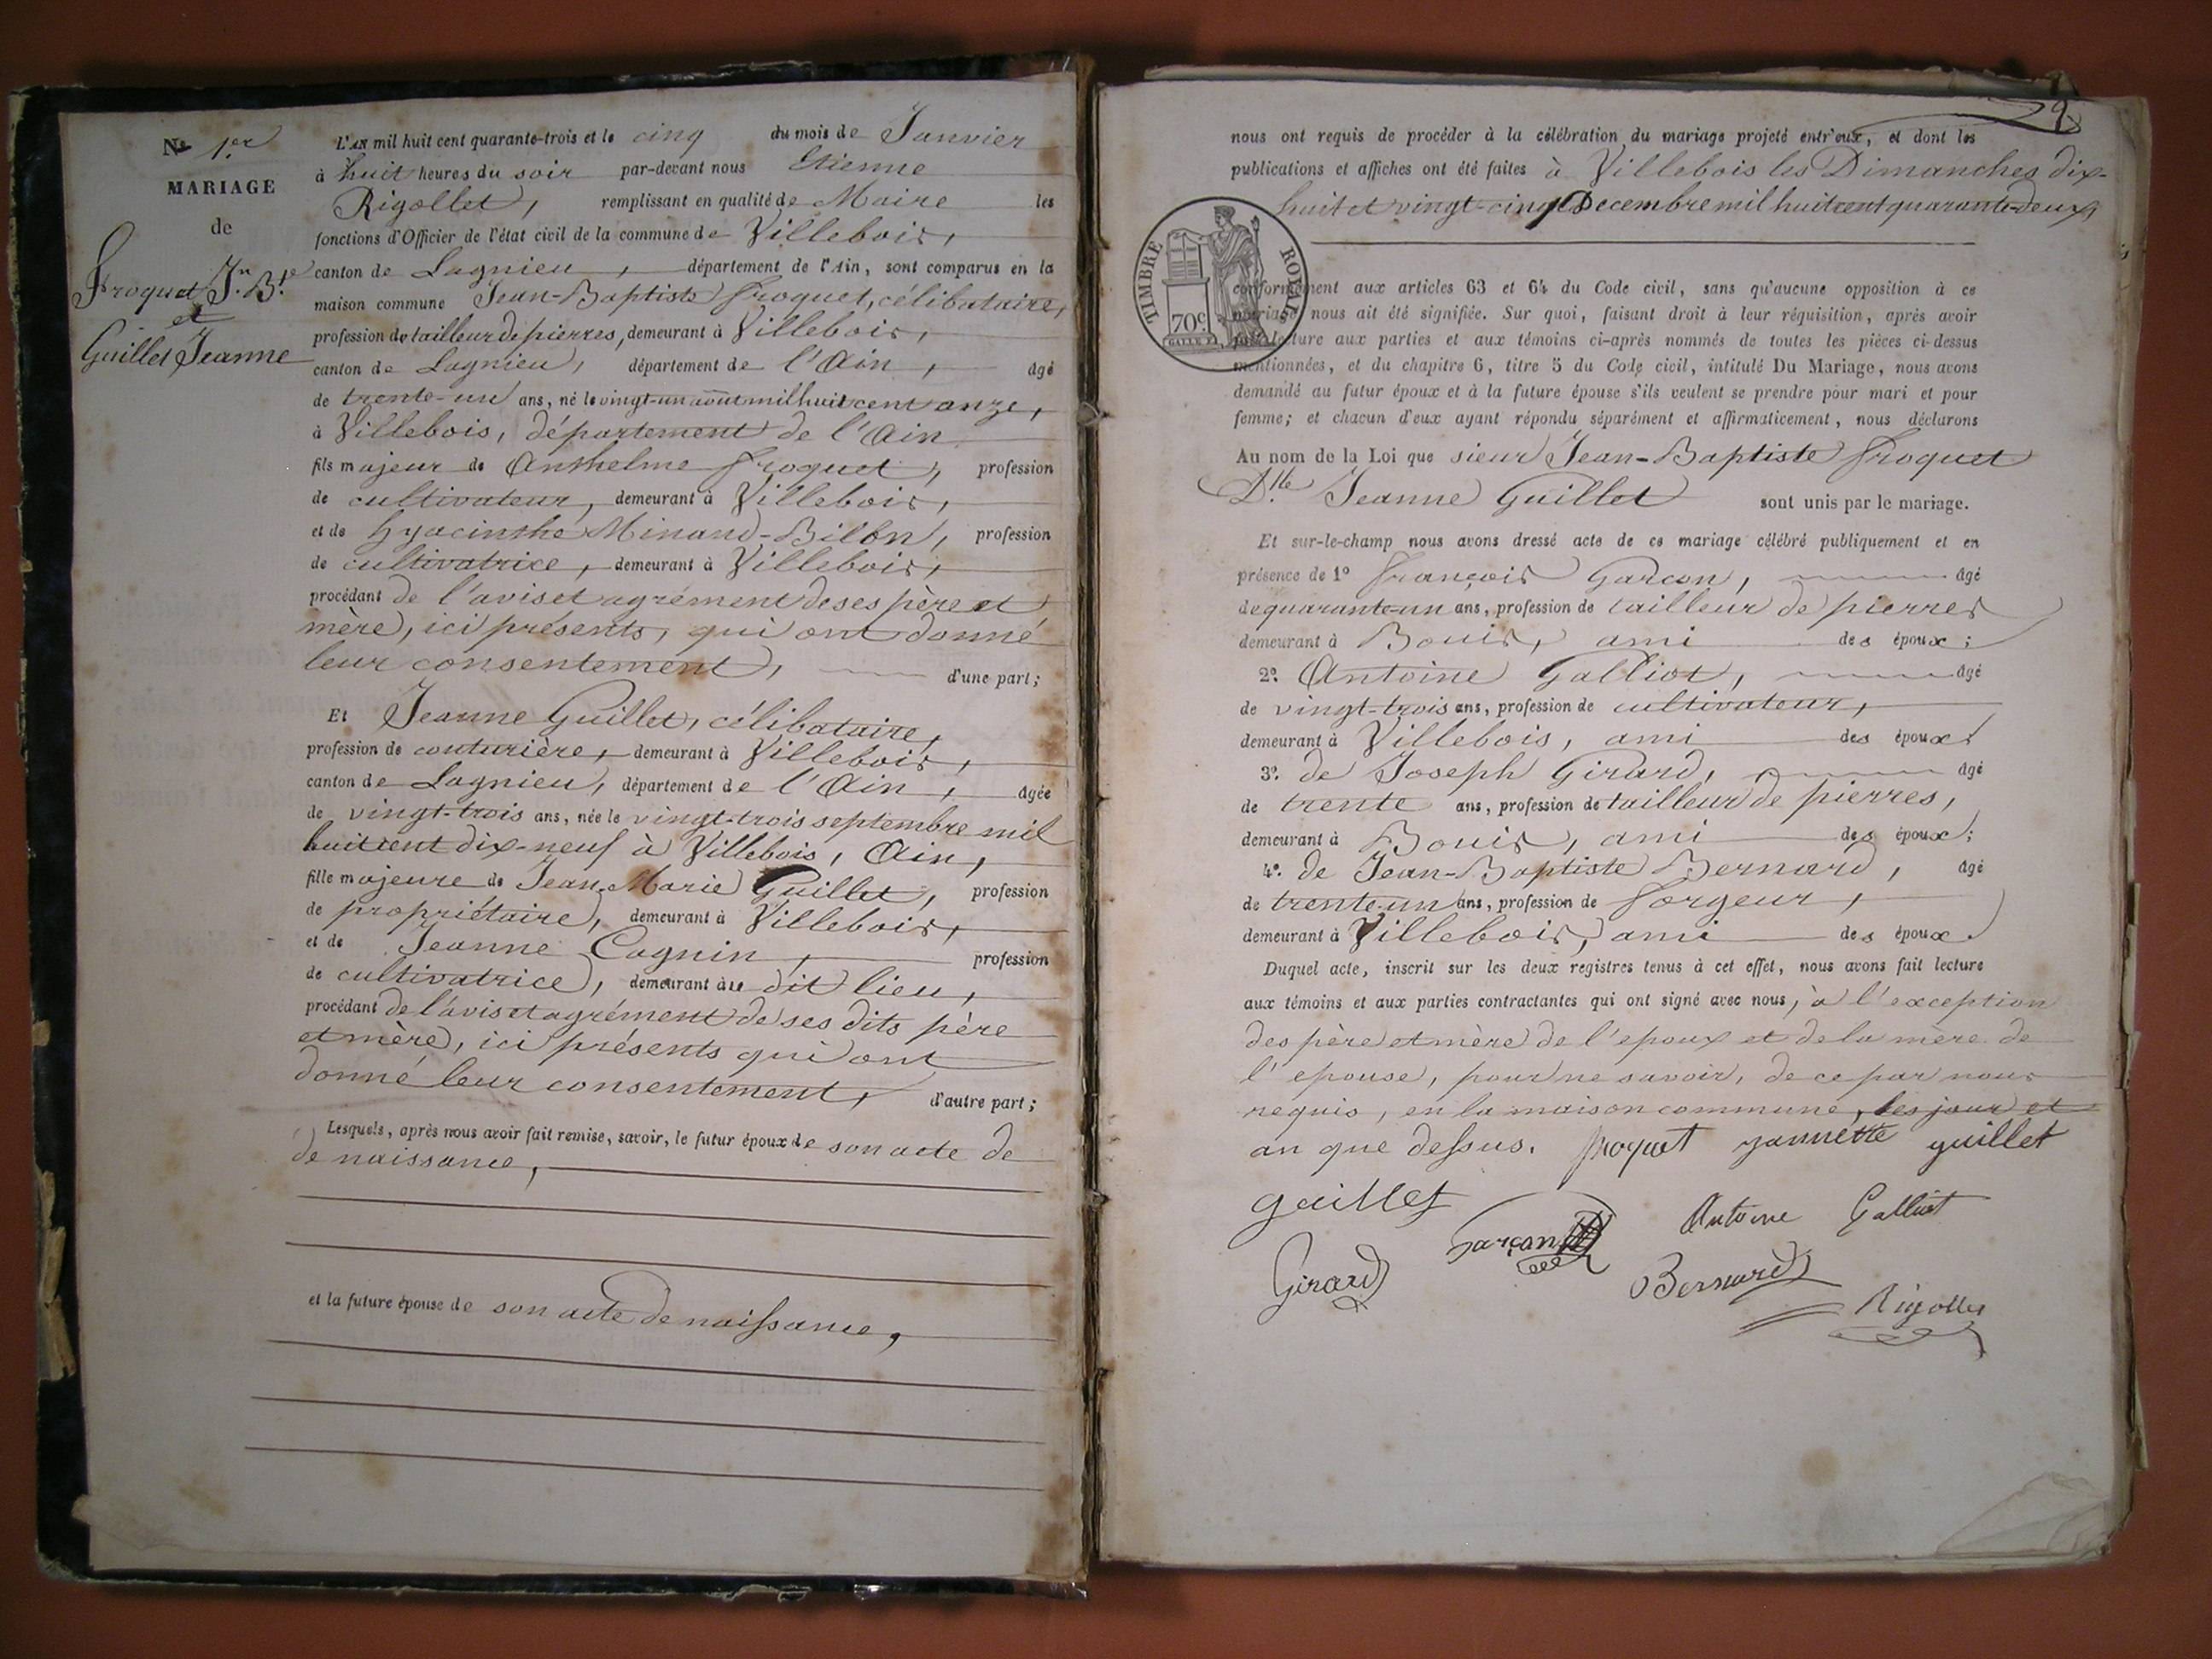 N.º 1.er
MARIAGE
de
Froquet J.n B.te
et
Guillet Jeanne
L'AN mil huit cent quarante-trois et le cinq du mois de Janvier
à huit heures du soir par-devant nous Etienne
Rigollet, remplissant en qualité de Maire les
fonctions d'Officier de l'état civil de la commune de Villebois,
canton de Lagnieu, département de l'Ain, sont comparus en la
maison commune Jean-Baptiste Froquet, célibataire,
profession de tailleur de pierres, demeurant à Villebois,
canton de Lagnieu, département de l'Ain, âgé
de trente-un ans, né le vingt-un août mil huit cent onze,
à Villebois, département de l'Ain
fils majeur de Anthelme Froquet, profession
de cultivateur, demeurant à Villebois,
et de Hyacinthe Minand-Billon, profession
de cultivatrice, demeurant à Villebois,
procédant de l'avis et agrément de ses père et
mère, ici présents, qui ont donné
leur consentement, d'une part;
Et Jeanne Guillet, célibataire,
profession de couturière, demeurant à Villebois,
canton de Lagnieu, département de l'Ain, âgée
de vingt-trois ans, née le vingt-trois septembre mil
huit cent dix-neuf à Villebois, Ain,
fille majeure de Jean-Marie Guillet, profession
de propriétaire, demeurant à Villebois,
et de Jeanne Cagnin, profession
de cultivatrice, demeurant au dit lieu,
procédant de l'avis et agrément de ses dits père
et mère, ici présents qui ont
donné leur consentement, d'autre part;
Lesquels, après nous avoir fait remise, savoir, le futur époux de son acte de
de naissance,
et la future épouse de son acte de naissance,
9
nous ont requis de procéder à la célébration du mariage projeté entr'eux, et dont les
publications et affiches ont été faites à Villebois les Dimanches dix-
huit et vingt-cinq Decembre mil huit cent quarante-deux,
TIMBRE ROYAL
70c.
conformément aux articles 63 et 64 du Code civil, sans qu'aucune opposition à ce
mariage nous ait été signifiée. Sur quoi, faisant droit à leur réquisition, après avoir
fait lecture aux parties et aux témoins ci-après nommés de toutes les pièces ci-dessus
mentionnées, et du chapitre 6, titre 5 du Code civil, intitulé Du Mariage, nous avons
demandé au futur époux et à la future épouse s'ils veulent se prendre pour mari et pour
femme; et chacun d'eux ayant répondu séparément et affirmativement, nous déclarons
Au nom de la Loi que sieur Jean-Baptiste Froquet
D.lle Jeanne Guillet sont unis par le mariage.
Et sur-le-champ nous avons dressé acte de ce mariage célébré publiquement et en
présence de 1º François Garcon, âgé
de quarante-un ans, profession de tailleur de pierres
demeurant à Bouis, ami des époux;
2º. Antoine Galliot, âgé
de vingt-trois ans, profession de cultivateur,
demeurant à Villebois, ami des époux;
3º. de Joseph Girard, âgé
de trente ans, profession de tailleur de pierres,
demeurant à Bouis, ami des époux;
4º. de Jean-Baptiste Bernard, âgé
de trente-un ans, profession de forgeur,
demeurant à Villebois, ami des époux.
Duquel acte, inscrit sur les deux registres tenus à cet effet, nous avons fait lecture
aux témoins et aux parties contractantes qui ont signé avec nous, à l'exception
des père et mère de l'epoux et de la mère de
l'epouse, pour ne savoir, de ce par nous
requis, en la maison commune, les jour et
an que dessus. froquet jannette guillet
guillet
Garçon Antoine Galliot
Girard Bernard
Rigollet